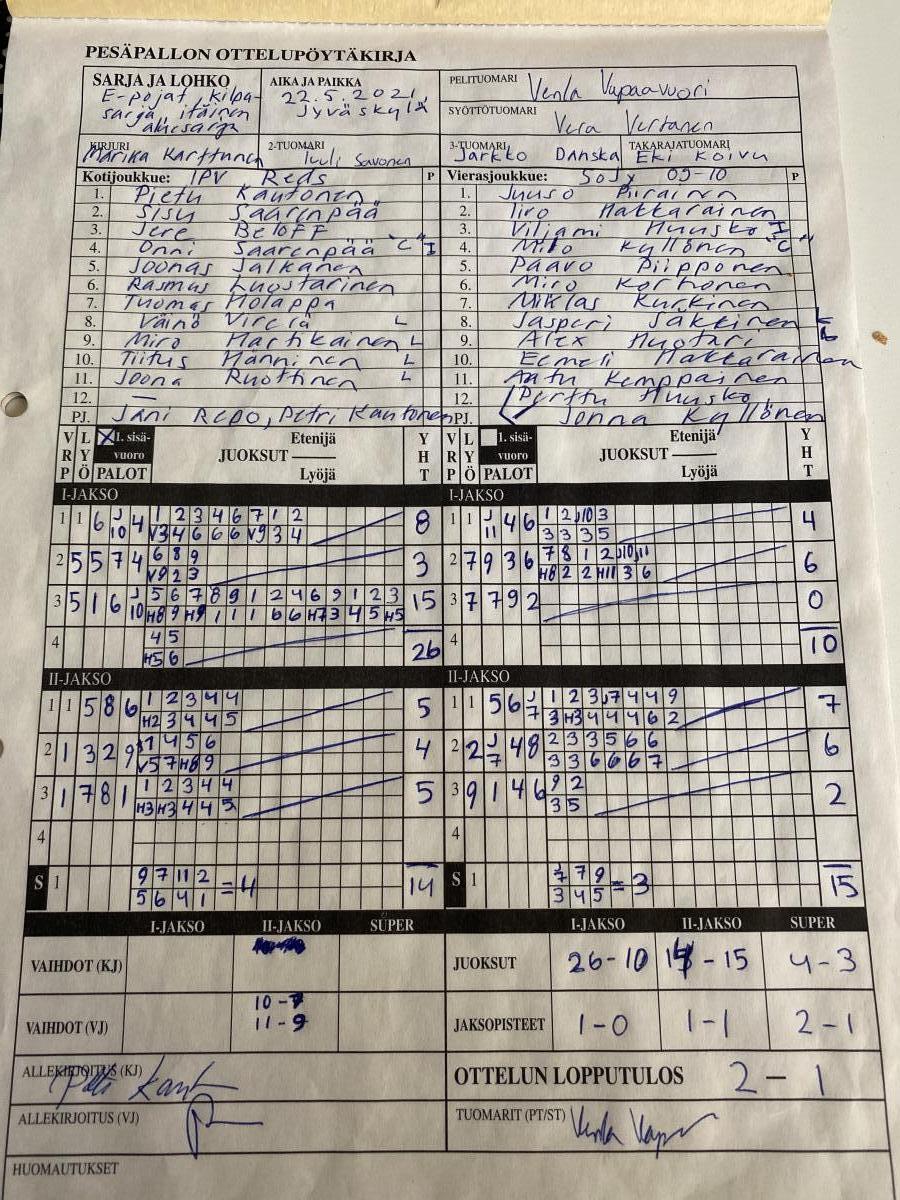 PESÄPALLON OTTELUPÖYTÄKIRJA
SARJA JA LOHKO
E-pojat, kilpa-
sarja, itäinen
alkusarja
AIKA JA PAIKKA
22.5.2021,
Jyväskylä
PELITUOMARI Venla Vapaavuori
SYÖTTÖTUOMARI
Vera Virtanen
KIRJURI
Marika Karttunen
2-TUOMARI
Tuuli Savonen
3-TUOMARI
Jarkko Danska
TAKARAJATUOMARI
Eki Koivu
Kotijoukkue: IPV Reds P
1. Pietu Kautonen
2. Sisu Saarenpää
3. Jere Beloff
4. Onni Saarenpää "C" I
5. Joonas Jalkanen
6. Rasmus Luostarinen
7. Tuomas Holappa
8. Väinö L
9. Miro Martikainen L
10. Tiitus Hänninen L
11. Joona Ruottinen L
12. —
PJ. Jani Repo, Petri Kautonen
Vierasjoukkue: SoJy 09-10 P
1. Juuso Piirainen
2. Iiro Hakkarainen
3. Viljami Huusko I
4. Milo Kyllönen "C"
5. Paavo Piipponen
6. Miro Korhonen
7. Miklas Kurkinen
8. Jasperi Säkkinen L
9. Alex Huotari L
10. Eemeli Hakkarainen
11. Antu Kemppainen
12. Perttu Huusko
PJ. Jonna Kyllönen
VRP LYÖ X 1. sisä-vuoro PALOT Etenijä JUOKSUT Lyöjä YHT
I-JAKSO
1 1 6 J10 4 1 2 3 4 6 7 1 2 8
V3 4 6 6 6 V9 3 4
2 5 5 7 4 6 8 9 3
V9 2 3
3 5 1 6 J10 5 6 7 8 9 1 2 4 6 9 1 2 3 15
H8 9 H9 1 1 1 6 6 H7 3 4 5 H5
4 4 5 26
H5 6
II-JAKSO
1 1 5 8 6 1 2 3 4 4 5
H2 3 4 4 5
2 1 3 2 9 1 4 5 6 4
V5 7 H8 9
3 1 7 8 1 1 2 3 4 4 5
H3 H3 4 4 5
4
S 1 9 7 11 2 = 4 14
5 6 4 1
VRP LYÖ 1. sisä-vuoro PALOT Etenijä JUOKSUT Lyöjä YHT
I-JAKSO
1 1 J11 4 6 1 2 J10 3 4
3 3 3 5
2 7 9 3 6 7 8 1 2 J10 J11 6
H8 2 2 H11 3 6
3 7 7 9 2 0
4 10
II-JAKSO
1 1 5 6 J7 1 2 3 J7 4 4 9 7
3 H3 4 4 4 6 2
2 2 J7 4 8 2 3 3 5 6 6 6
3 3 6 6 6 7
3 9 1 4 6 9 2 2
3 5
4
S 1 7 7 9 = 3 15
3 4 5
I-JAKSO II-JAKSO SUPER
VAIHDOT (KJ)
VAIHDOT (VJ) 10-7
11-9
I-JAKSO II-JAKSO SUPER
JUOKSUT 26-10 14-15 4-3
JAKSOPISTEET 1-0 1-1 2-1
ALLEKIRJOITUS (KJ)
ALLEKIRJOITUS (VJ)
OTTELUN LOPPUTULOS 2 - 1
TUOMARIT (PT/ST)
HUOMAUTUKSET